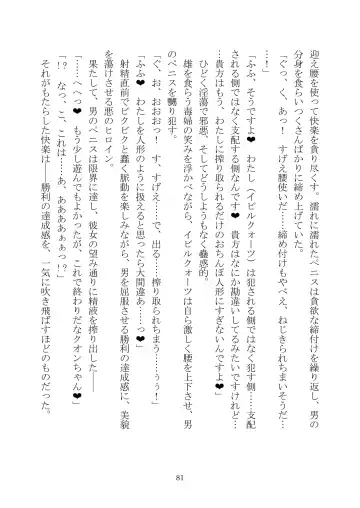 迎え腰を使って快楽を貪り尽くす。濡れに濡れたペニスは貪欲な締付けを繰り返し、男の
分身を食らいつくさんばかりに締め上げていた。
「ぐっ、く、あっ！　すげえ腰使いだ……締め付けもやべえ、ねじきられちまいそうだ…
…！」
「ふふ、そうですよ❤　わたし（イビルクォーツ）は犯される側ではなく犯す側……支配
される側ではなく支配する側なんです❤　貴方はなにか勘違いしてるみたいですけれど…
…貴方はもう、わたしに搾り取られるだけのおちんぽ人形にすぎないんですよ❤」
ひどく淫蕩で邪悪、そしてどうしようもなく蠱惑的。
雄を食らう毒婦の笑みを浮かべながら、イビルクォーツは自ら激しく腰を上下させ、男
のペニスを嬲り犯す。
「ぐ、お、おおっ！　す、すげえ……出る……搾り取られちまう……うぅ！」
「ふふ❤　わたしを人形のように扱えるとでも思ったら大間違ぁ……っ❤」
射精直前でビクビクと蠢く脈動を楽しみながら、男を屈服させる勝利の達成感に、美貌
を蕩けさせる悪のヒロイン。
果たして、男のペニスは限界に達し、彼女の望み通りに精液を搾り出した――
「……へへっ❤　もう少し遊んでもよかったが、これで終わりだなクオンちゃん❤」
「？　なっ、こ、これは……あ、ああああぁぁっ！？」
それがもたらした快楽は――勝利の達成感を、一気に吹き飛ばすほどのものだった。
81